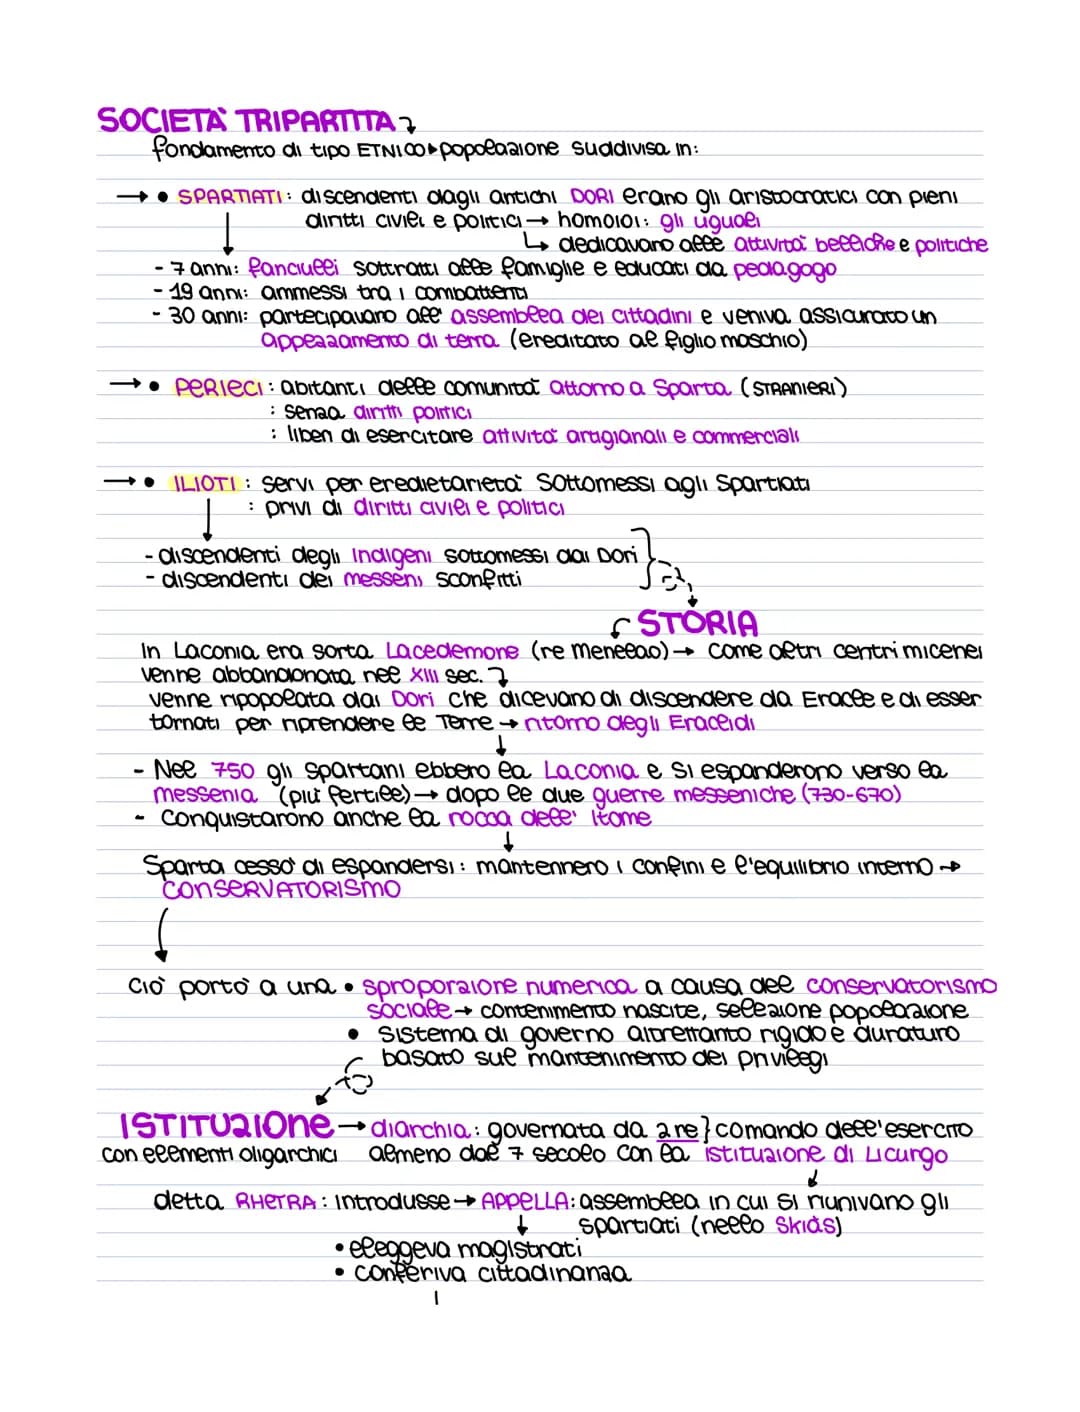 SOCIETÀ TRIPARTITA
fondamento di tipo ETNICO popolazione suddivisa in:
→ • SPARTIATI: discendenti dagli antichi DORI erano gli aristocratici con pieni
diritti civili e politici → homoioi: gli uguali
↳ dedicavano alle attività belliche e politiche
- 7 anni: fanciulli sottratti alle famiglie e educati da pedagogo
- 19 anni: ammessi tra i combattenti
- 30 anni: partecipavano all' assemblea dei cittadini e veniva assicurato un
appezzamento di terra (ereditato al figlio maschio)
→ • PERIECI: abitanti delle comunità attorno a Sparta (STRANIERI)
: senza diritti politici
: liberi di esercitare attività artigianali e commerciali
→ • ILIOTI: servi per eredietarietà sottomessi agli Spartiati
: privi di diritti civili e politici
- discendenti degli indigeni sottomessi dai Dori
- discendenti dei messeni sconfitti
STORIA
In Laconia era sorta Lacedemone (re Menelao) → come altri centri micenei
venne abbandonata nel XIII sec.
venne ripopolata dai Dori che dicevano di discendere da Eracle e di esser
tornati per riprendere le Terre → ritorno degli Eraclidi
- Nel 750 gli spartani ebbero la Laconia e si espanderono verso la
messenia (più fertile) → dopo le due guerre messeniche (730-670)
- Conquistarono anche la rocca dell' Itome
Sparta cessò di espandersi: mantennero i confini e l'equilibrio interno →
CONSERVATORISMO
Ciò portò a una • sproporzione numerica a causa del conservatorismo
sociale → contenimento nascite, selezione popolazione
• sistema di governo altrettanto rigido e duraturo
basato sul mantenimento dei privilegi
ISTITUZIONE → diarchia: governata da 2 re} comando dell'esercito
con elementi oligarchici almeno dal 7 secolo con la istituzione di Licurgo
detta RHETRA: introdusse → APPELLA: assemblea in cui si riunivano gli
spartiati (nello Skias)
• eleggeva magistrati
• conferiva cittadinanza